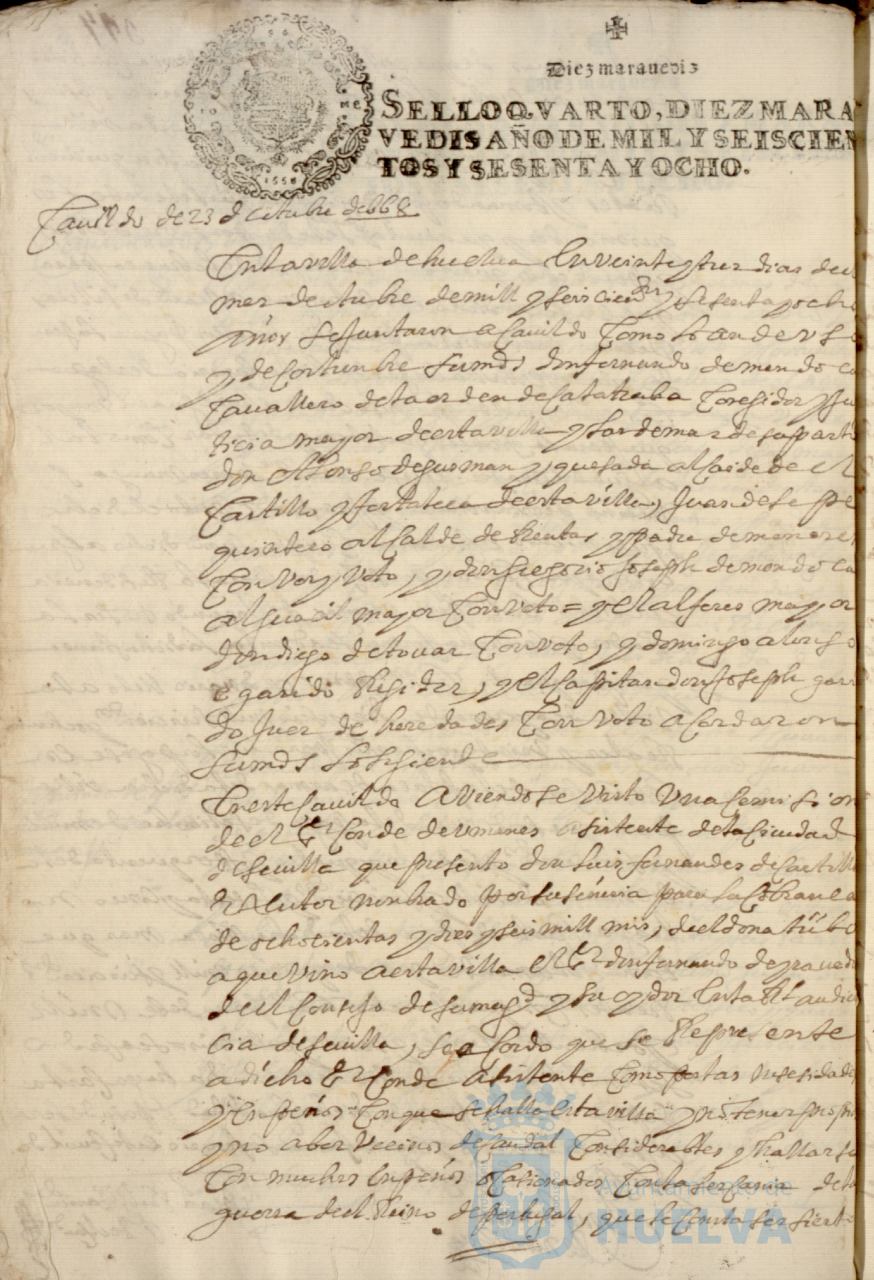 Diez maravedis
SELLO QVARTO, DIEZ MARA
VEDIS AÑO DE MIL Y SEISCIEN
TOS Y SESENTA Y OCHO.
Cavildo de 23 de otubre de 668
En la villa de huelva En veinte y tres dias del
mes de otubre de mill y seiscien.os y sesenta y ocho
años se Juntaron a Cavildo Como lo an de uso
y de Costunbre sus mds don fernando de mendoca
Cavallero de la orden de Calatraba Coregidor y Jus
ticia mayor de esta villa y las demas de su parti
don Alonso de gusman y quesada alcaide de el
Castillo y fortaleca de esta villa, Juan de
quintero alcalde de Rentas y padre de menores
Con Voz y Voto, y don gregorio Joseph de mendoca
alguacil mayor Con Voto = y el alferes mayor
don diego de tovar Con Voto, y domingo alonso
garrido Regidor, y el Capitan don Joseph garri
do Juez de heredades Con Voto acordaron
sus mds lo siguiente
En este Cavildo aviendose Visto Una Comision
de el Sr Conde de Umanes asistente de la Ciudad
de sevilla que presento don luis fernandes de Castillo
Executor nonbrado por su señoria para la Cobranca
de ochocientas y dies y seis mill mrs, de el donatibo
a que Vino a esta villa el Sr don fernando de
de el Consejo de su magd y su oydor En la Rl audien
cia de sevilla, se acordo que se Represente
a dicho Sr Conde asistente Como por las nesesidades
y Enpeños Con que se halla esta villa y no tener propios
y no aber Vecinos de Caudal Considerables y hallarse
Con muchos Enpeños ocasionados Con la sercania de la
guerra de el Reino de portugal, que se Conta
Ayuntamiento de
HUELVA